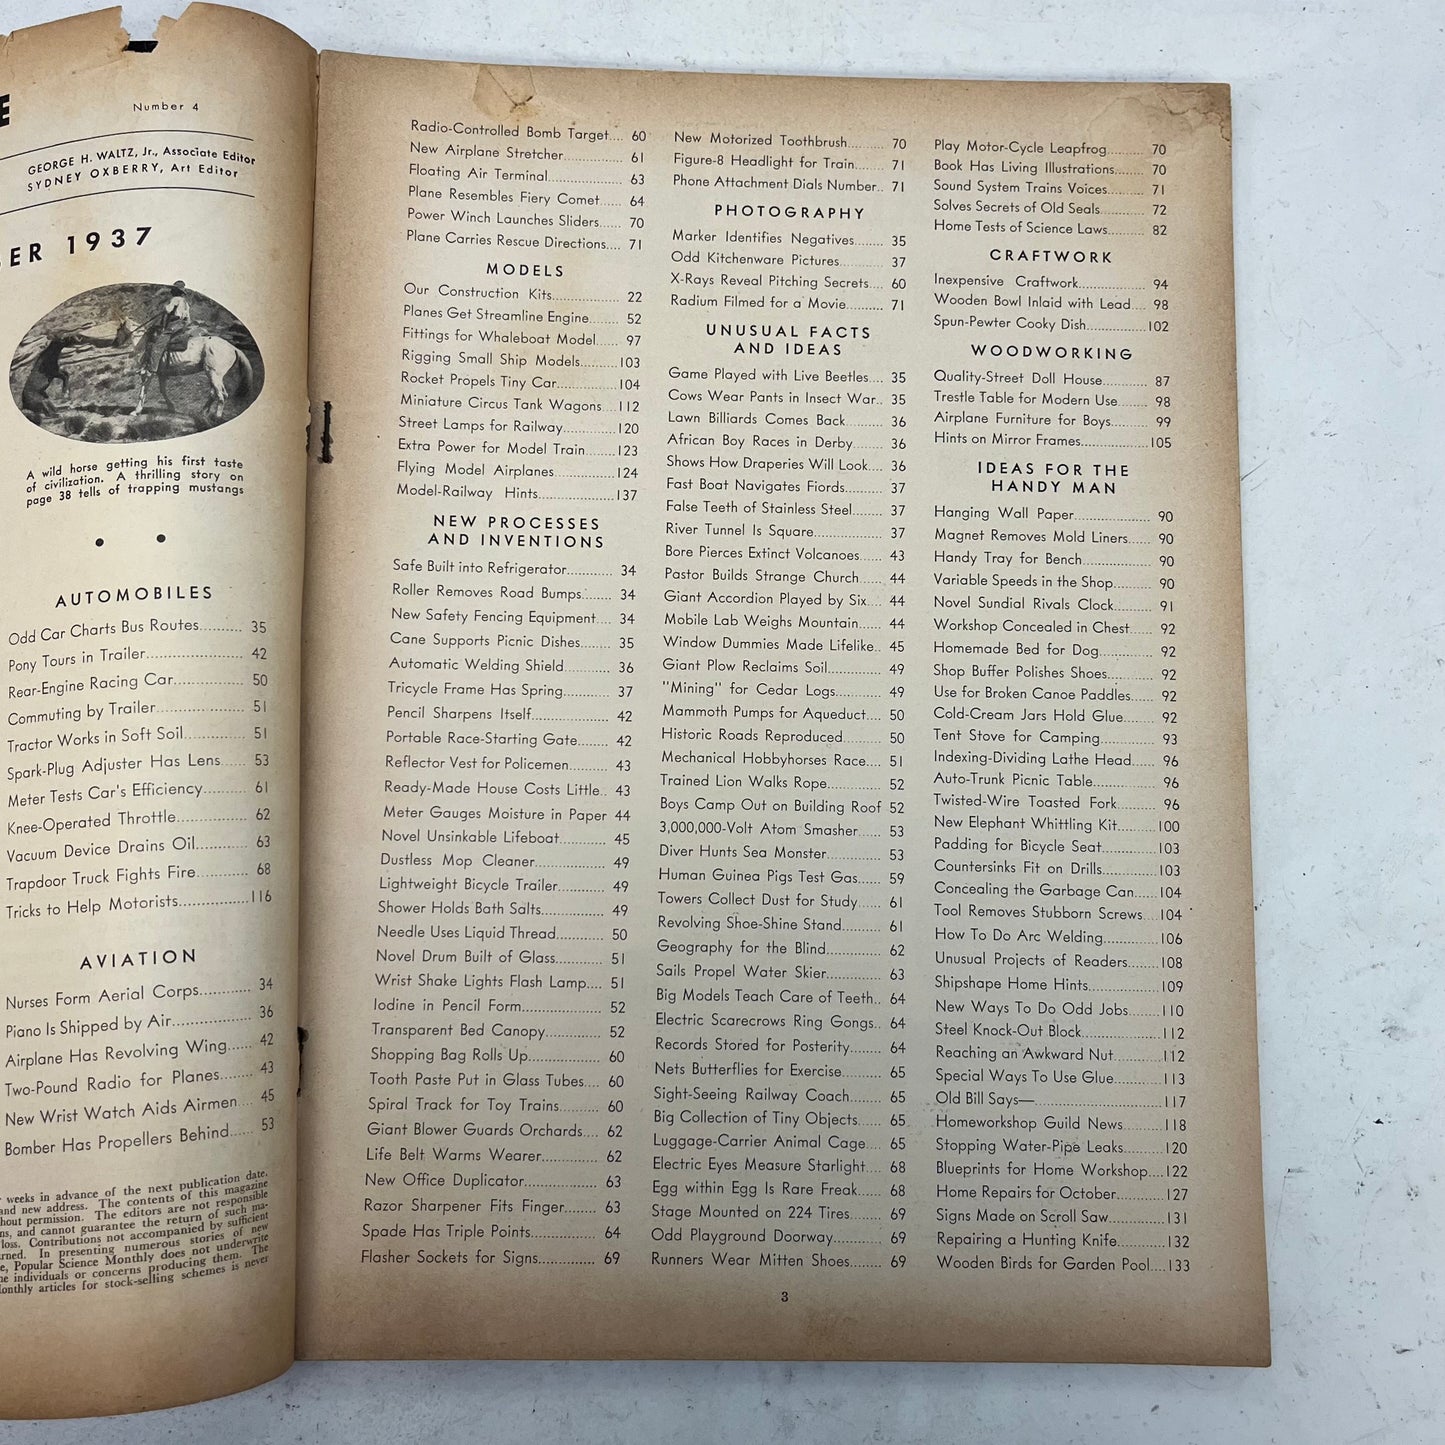 E
Number 4
GEORGE H. WALTZ, Jr., Associate Editor
SYDNEY OXBERRY, Art Editor
BER 1937
A wild horse getting his first taste
of civilization. A thrilling story on
page 38 tells of trapping mustangs
AUTOMOBILES
Odd Car Charts Bus Routes.......... 35
Pony Tours in Trailer.................... 42
Rear-Engine Racing Car................ 50
Commuting by Trailer.................... 51
Tractor Works in Soft Soil.............. 51
Spark-Plug Adjuster Has Lens...... 53
Meter Tests Car's Efficiency.......... 61
Knee-Operated Throttle................ 62
Vacuum Device Drains Oil............ 63
Trapdoor Truck Fights Fire............ 68
Tricks to Help Motorists................116
AVIATION
Nurses Form Aerial Corps............ 34
Piano Is Shipped by Air................ 36
Airplane Has Revolving Wing...... 42
Two-Pound Radio for Planes........ 43
New Wrist Watch Aids Airmen.... 45
Bomber Has Propellers Behind...... 53
weeks in advance of the next publication date.
and new address. The contents of this magazine
hout permission. The editors are not responsible
ns, and cannot guarantee the return of such ma-
loss. Contributions not accompanied by sufficient
rned. In presenting numerous stories of new
e, Popular Science Monthly does not underwrite
he individuals or concerns producing them. The
onthly articles for stock-selling schemes is never
Radio-Controlled Bomb Target.... 60
New Airplane Stretcher.............. 61
Floating Air Terminal.................. 63
Plane Resembles Fiery Comet...... 64
Power Winch Launches Sliders.... 70
Plane Carries Rescue Directions.... 71
MODELS
Our Construction Kits.................. 22
Planes Get Streamline Engine........ 52
Fittings for Whaleboat Model...... 97
Rigging Small Ship Models..........103
Rocket Propels Tiny Car..............104
Miniature Circus Tank Wagons....112
Street Lamps for Railway..............120
Extra Power for Model Train........123
Flying Model Airplanes................124
Model-Railway Hints....................137
NEW PROCESSES
AND INVENTIONS
Safe Built into Refrigerator............ 34
Roller Removes Road Bumps........ 34
New Safety Fencing Equipment.... 34
Cane Supports Picnic Dishes........ 35
Automatic Welding Shield............ 36
Tricycle Frame Has Spring............ 37
Pencil Sharpens Itself.................... 42
Portable Race-Starting Gate........ 42
Reflector Vest for Policemen.......... 43
Ready-Made House Costs Little.. 43
Meter Gauges Moisture in Paper 44
Novel Unsinkable Lifeboat............ 45
Dustless Mop Cleaner.................. 49
Lightweight Bicycle Trailer............ 49
Shower Holds Bath Salts................ 49
Needle Uses Liquid Thread............ 50
Novel Drum Built of Glass............ 51
Wrist Shake Lights Flash Lamp.... 51
Iodine in Pencil Form.................... 52
Transparent Bed Canopy.............. 52
Shopping Bag Rolls Up................ 60
Tooth Paste Put in Glass Tubes.... 60
Spiral Track for Toy Trains.......... 60
Giant Blower Guards Orchards.... 62
Life Belt Warms Wearer.............. 62
New Office Duplicator.................. 63
Razor Sharpener Fits Finger........ 63
Spade Has Triple Points................ 64
Flasher Sockets for Signs.............. 69
New Motorized Toothbrush.......... 70
Figure-8 Headlight for Train........ 71
Phone Attachment Dials Number.. 71
PHOTOGRAPHY
Marker Identifies Negatives........ 35
Odd Kitchenware Pictures............ 37
X-Rays Reveal Pitching Secrets.... 60
Radium Filmed for a Movie.......... 71
UNUSUAL FACTS
AND IDEAS
Game Played with Live Beetles.... 35
Cows Wear Pants in Insect War.. 35
Lawn Billiards Comes Back.......... 36
African Boy Races in Derby........ 36
Shows How Draperies Will Look.... 36
Fast Boat Navigates Fiords.......... 37
False Teeth of Stainless Steel........ 37
River Tunnel Is Square.................. 37
Bore Pierces Extinct Volcanoes...... 43
Pastor Builds Strange Church...... 44
Giant Accordion Played by Six.... 44
Mobile Lab Weighs Mountain...... 44
Window Dummies Made Lifelike.. 45
Giant Plow Reclaims Soil.............. 49
"Mining" for Cedar Logs.............. 49
Mammoth Pumps for Aqueduct.... 50
Historic Roads Reproduced.......... 50
Mechanical Hobbyhorses Race.... 51
Trained Lion Walks Rope............ 52
Boys Camp Out on Building Roof 52
3,000,000-Volt Atom Smasher...... 53
Diver Hunts Sea Monster.............. 53
Human Guinea Pigs Test Gas...... 59
Towers Collect Dust for Study...... 61
Revolving Shoe-Shine Stand.......... 61
Geography for the Blind.............. 62
Sails Propel Water Skier.............. 63
Big Models Teach Care of Teeth.. 64
Electric Scarecrows Ring Gongs.. 64
Records Stored for Posterity........ 64
Nets Butterflies for Exercise.......... 65
Sight-Seeing Railway Coach........ 65
Big Collection of Tiny Objects...... 65
Luggage-Carrier Animal Cage.... 65
Electric Eyes Measure Starlight.... 68
Egg within Egg Is Rare Freak...... 68
Stage Mounted on 224 Tires........ 69
Odd Playground Doorway.......... 69
Runners Wear Mitten Shoes........ 69
Play Motor-Cycle Leapfrog.......... 70
Book Has Living Illustrations........ 70
Sound System Trains Voices.......... 71
Solves Secrets of Old Seals.......... 72
Home Tests of Science Laws........ 82
CRAFTWORK
Inexpensive Craftwork.................. 94
Wooden Bowl Inlaid with Lead.... 98
Spun-Pewter Cooky Dish..............102
WOODWORKING
Quality-Street Doll House............ 87
Trestle Table for Modern Use........ 98
Airplane Furniture for Boys.......... 99
Hints on Mirror Frames................105
IDEAS FOR THE
HANDY MAN
Hanging Wall Paper.................... 90
Magnet Removes Mold Liners...... 90
Handy Tray for Bench.................. 90
Variable Speeds in the Shop........ 90
Novel Sundial Rivals Clock.......... 91
Workshop Concealed in Chest...... 92
Homemade Bed for Dog.............. 92
Shop Buffer Polishes Shoes............ 92
Use for Broken Canoe Paddles...... 92
Cold-Cream Jars Hold Glue........ 92
Tent Stove for Camping.............. 93
Indexing-Dividing Lathe Head...... 96
Auto-Trunk Picnic Table................ 96
Twisted-Wire Toasted Fork.......... 96
New Elephant Whittling Kit..........100
Padding for Bicycle Seat..............103
Countersinks Fit on Drills..............103
Concealing the Garbage Can......104
Tool Removes Stubborn Screws....104
How To Do Arc Welding..............106
Unusual Projects of Readers........108
Shipshape Home Hints................109
New Ways To Do Odd Jobs........110
Steel Knock-Out Block..................112
Reaching an Awkward Nut..........112
Special Ways To Use Glue............113
Old Bill Says—............................117
Homeworkshop Guild News........118
Stopping Water-Pipe Leaks..........120
Blueprints for Home Workshop....122
Home Repairs for October............127
Signs Made on Scroll Saw............131
Repairing a Hunting Knife............132
Wooden Birds for Garden Pool....133
3